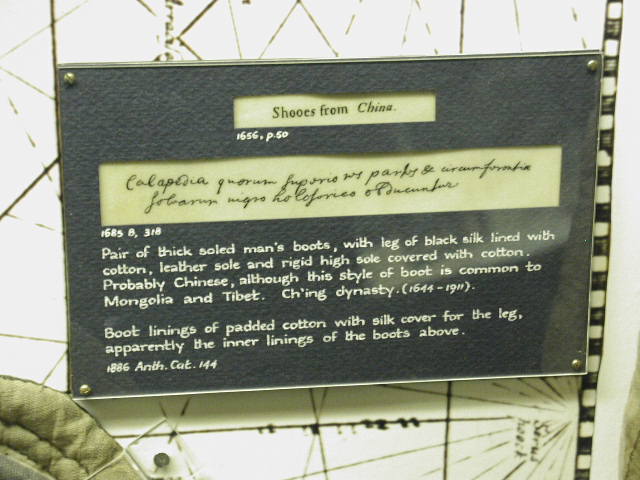 Shooes from China.
1656, p.50
Calapedia quorum superiores partes & circumferentia
solearum nigro holoserico obducuntur
1685 B, 318
Pair of thick soled man's boots, with leg of black silk lined with
cotton, leather sole and rigid high sole covered with cotton.
Probably Chinese, although this style of boot is common to
Mongolia and Tibet. Ch'ing dynasty. (1644-1911).
Boot linings of padded cotton with silk cover for the leg,
apparently the inner linings of the boots above.
1886 Anth. Cat. 144